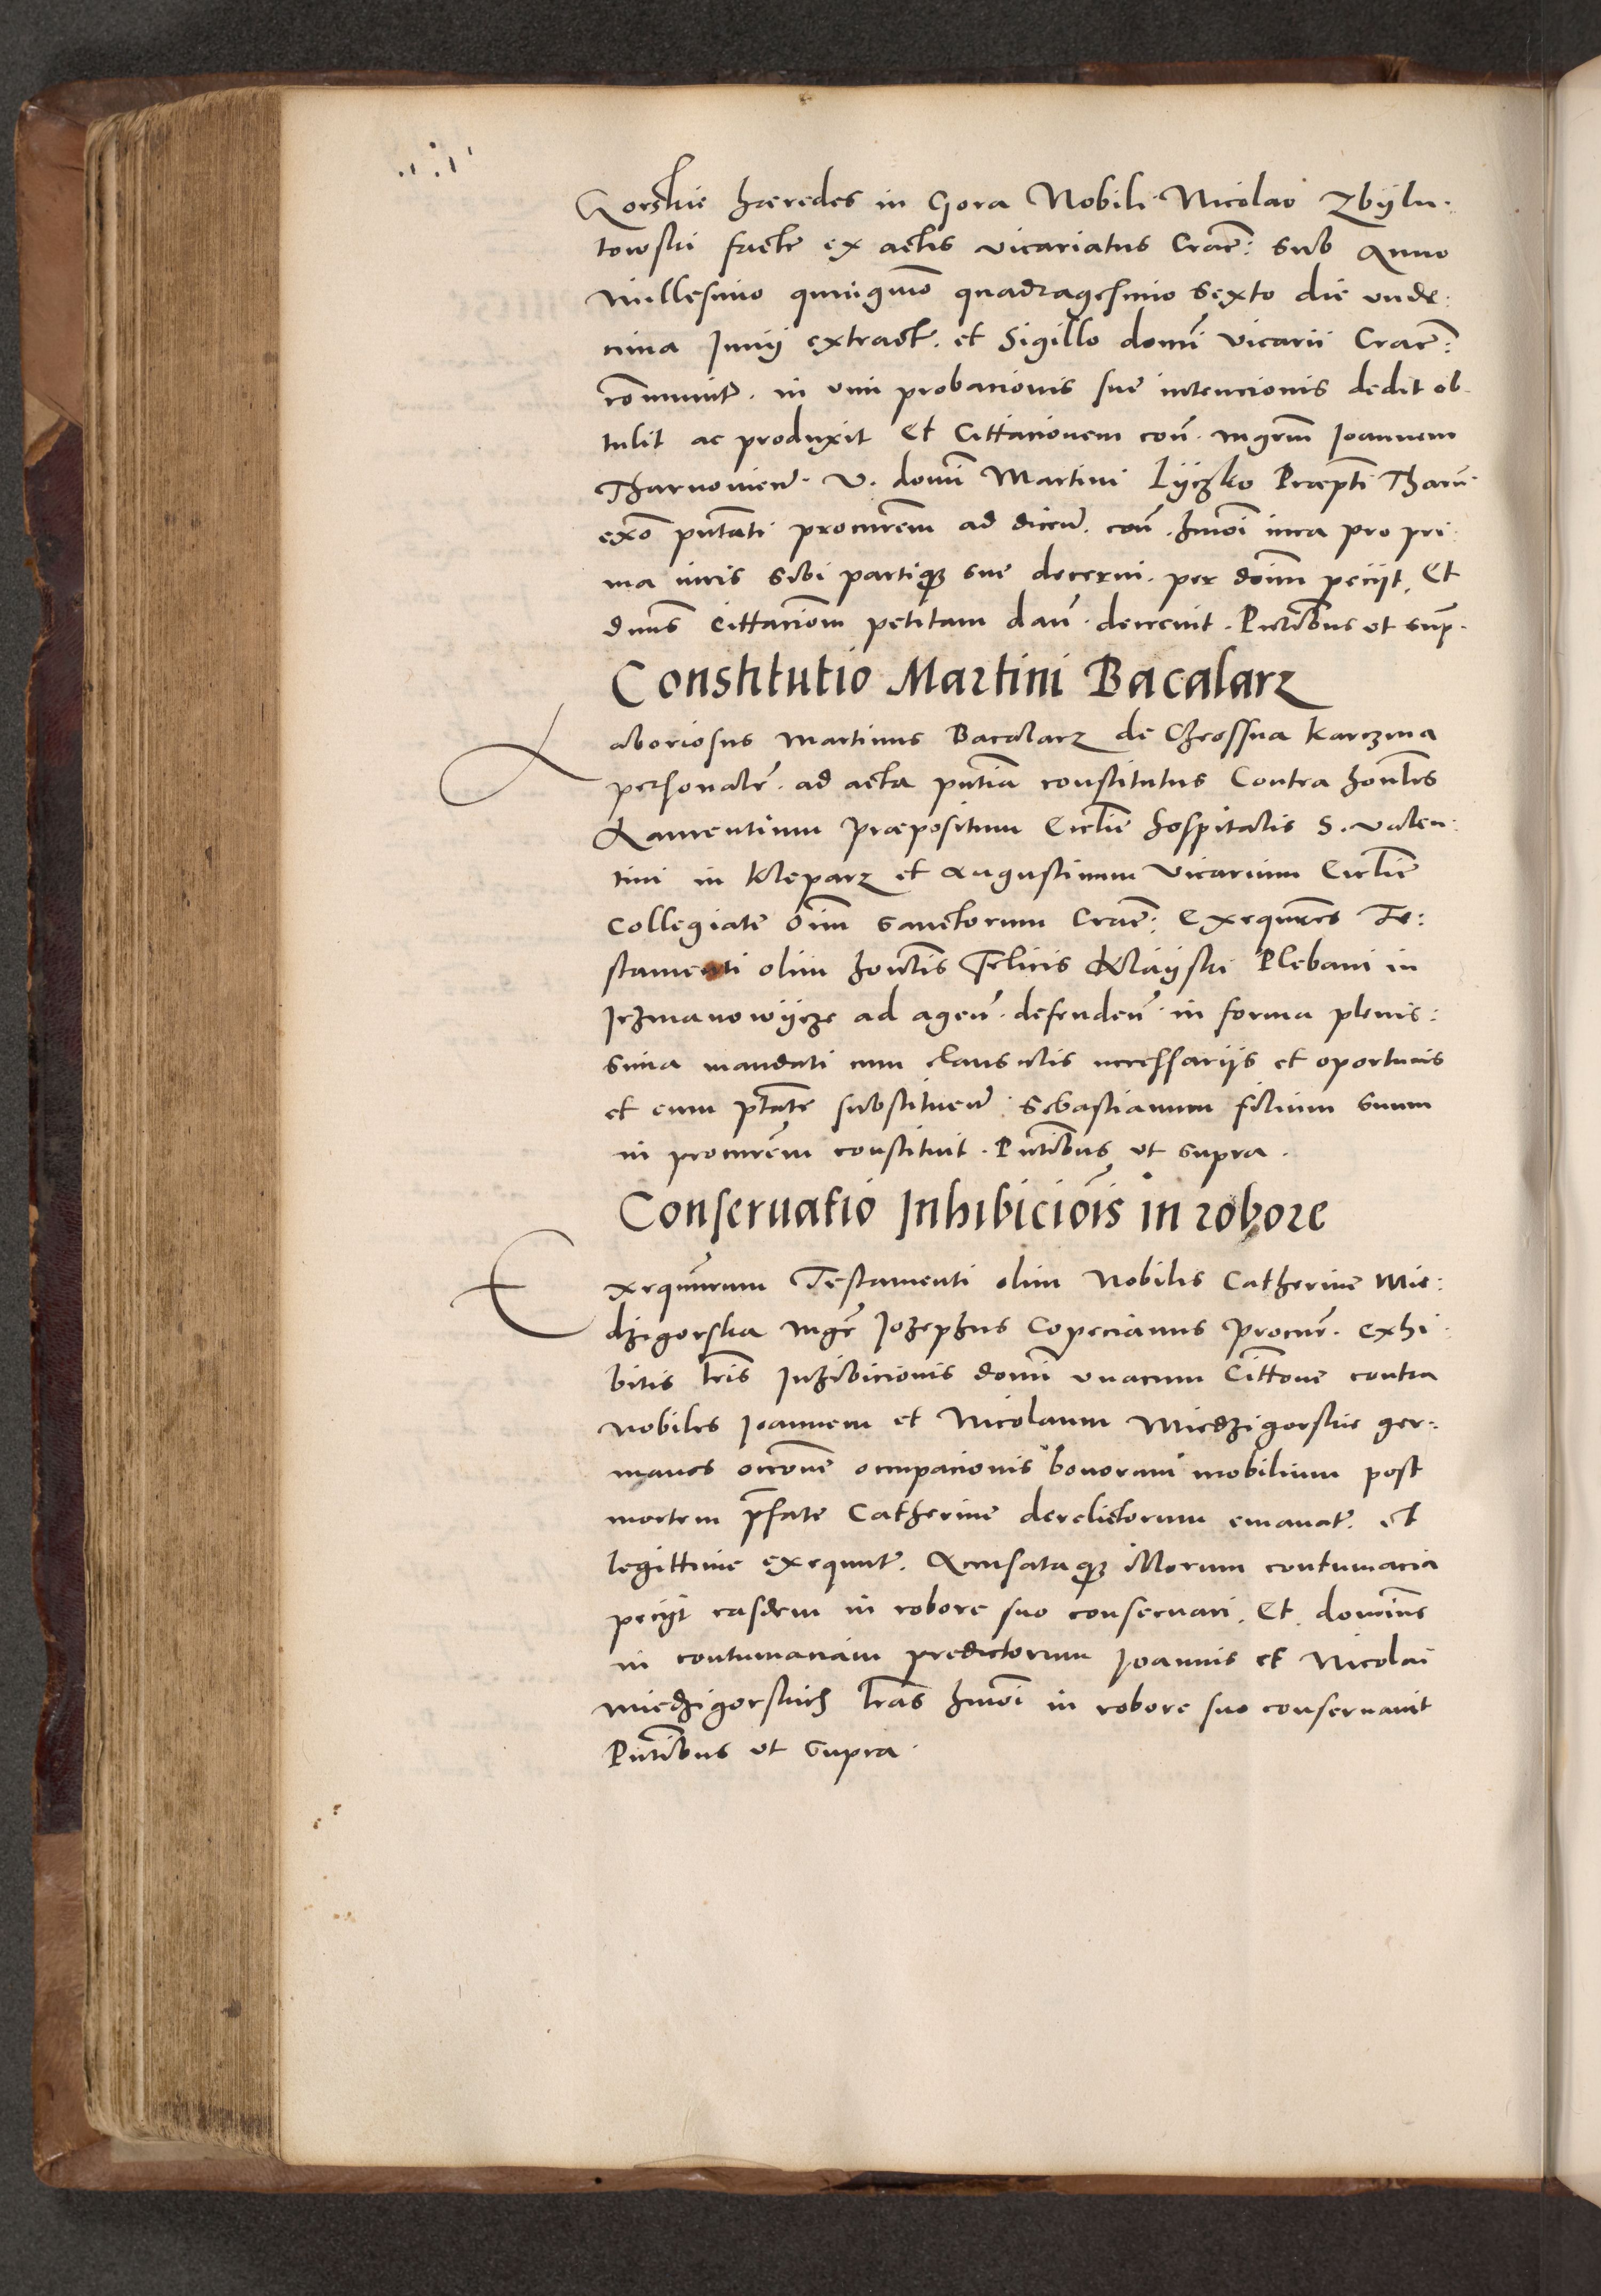 Gorskie hæredes in Gora Nobili Nicolao Zbÿlu-
towski facte ex actis vicariatus Crac̄: sub Anno
Millesimo quingm̄o quadragesimo sexto die unde:
cima Junij extract. et Sigillo domī vicarii Crac̄:
com̄unit. in vim probacionis sue intencionis dedit ob-
tulit ac produxit Et Cittacionem con̄. mgrm̄ Joannem
Tharnouien. V. domī Martini Lÿczko Præptī Tharn̄.
exō pn̄tati procurem̄ ad dicen̄. con̄. hm̄oi in ca pro pri:
ma iuris sibi partiqȝ sue decerni. per doīm peciit. Et
dnus̄ Cittacio͞m petitam dan̄. decreuit. Pn̄tibus et sup̄.
Constitutio Martini Bacalarz
Laboriosus Martinus Bacalarz de Czrossna karczma
personalr̄. ad acta pn̄tia constitutus Contra hon̄les
Laurentium Præpositum Eccl̄ie hospitalis S. valen:
tini in Kleparz et Augustinum Vicarium Eccl̄ie
Collegiate oīm sanctorum Crac̄: Exequtres Te:
stamenti olim hon̄lis Felicis Klaÿski Plebani in
Jrzmanowÿcze ad agen̄. defenden̄. in forma plenis:
sima mandati cum clausulis necessarijs et oportunis
et cum ptāte substituen̄. Sebastianum filium suum
in procurēm constituit. Pn̄tibus ut supra.
Conseruatio Inhibicioīs in robore
Exequutorum Testamenti olim Nobilis Catherine Mie:
dzigorska mgr̄ Jozephus Copecianus Procur̄. exhi:
bitis lr̄is Inhibicionis domī unacum Cittōne contra
Nobiles Joannem et Nicolaum Miedzigorskie ger:
manos occōne occupacionis bonorum mobilium post
mortem p̄fate Catherine derelictorum emanat. et
legittime exequut. Accusataqȝ illorum contumacia
peciit easdem in robore suo conseruari. Et dominus
in contumaciam predictorum Joannis et Nicolai
Miedzigorskich lr̄as hm̄oi in robore suo conseruauit
Pn̄tibus ut supra.